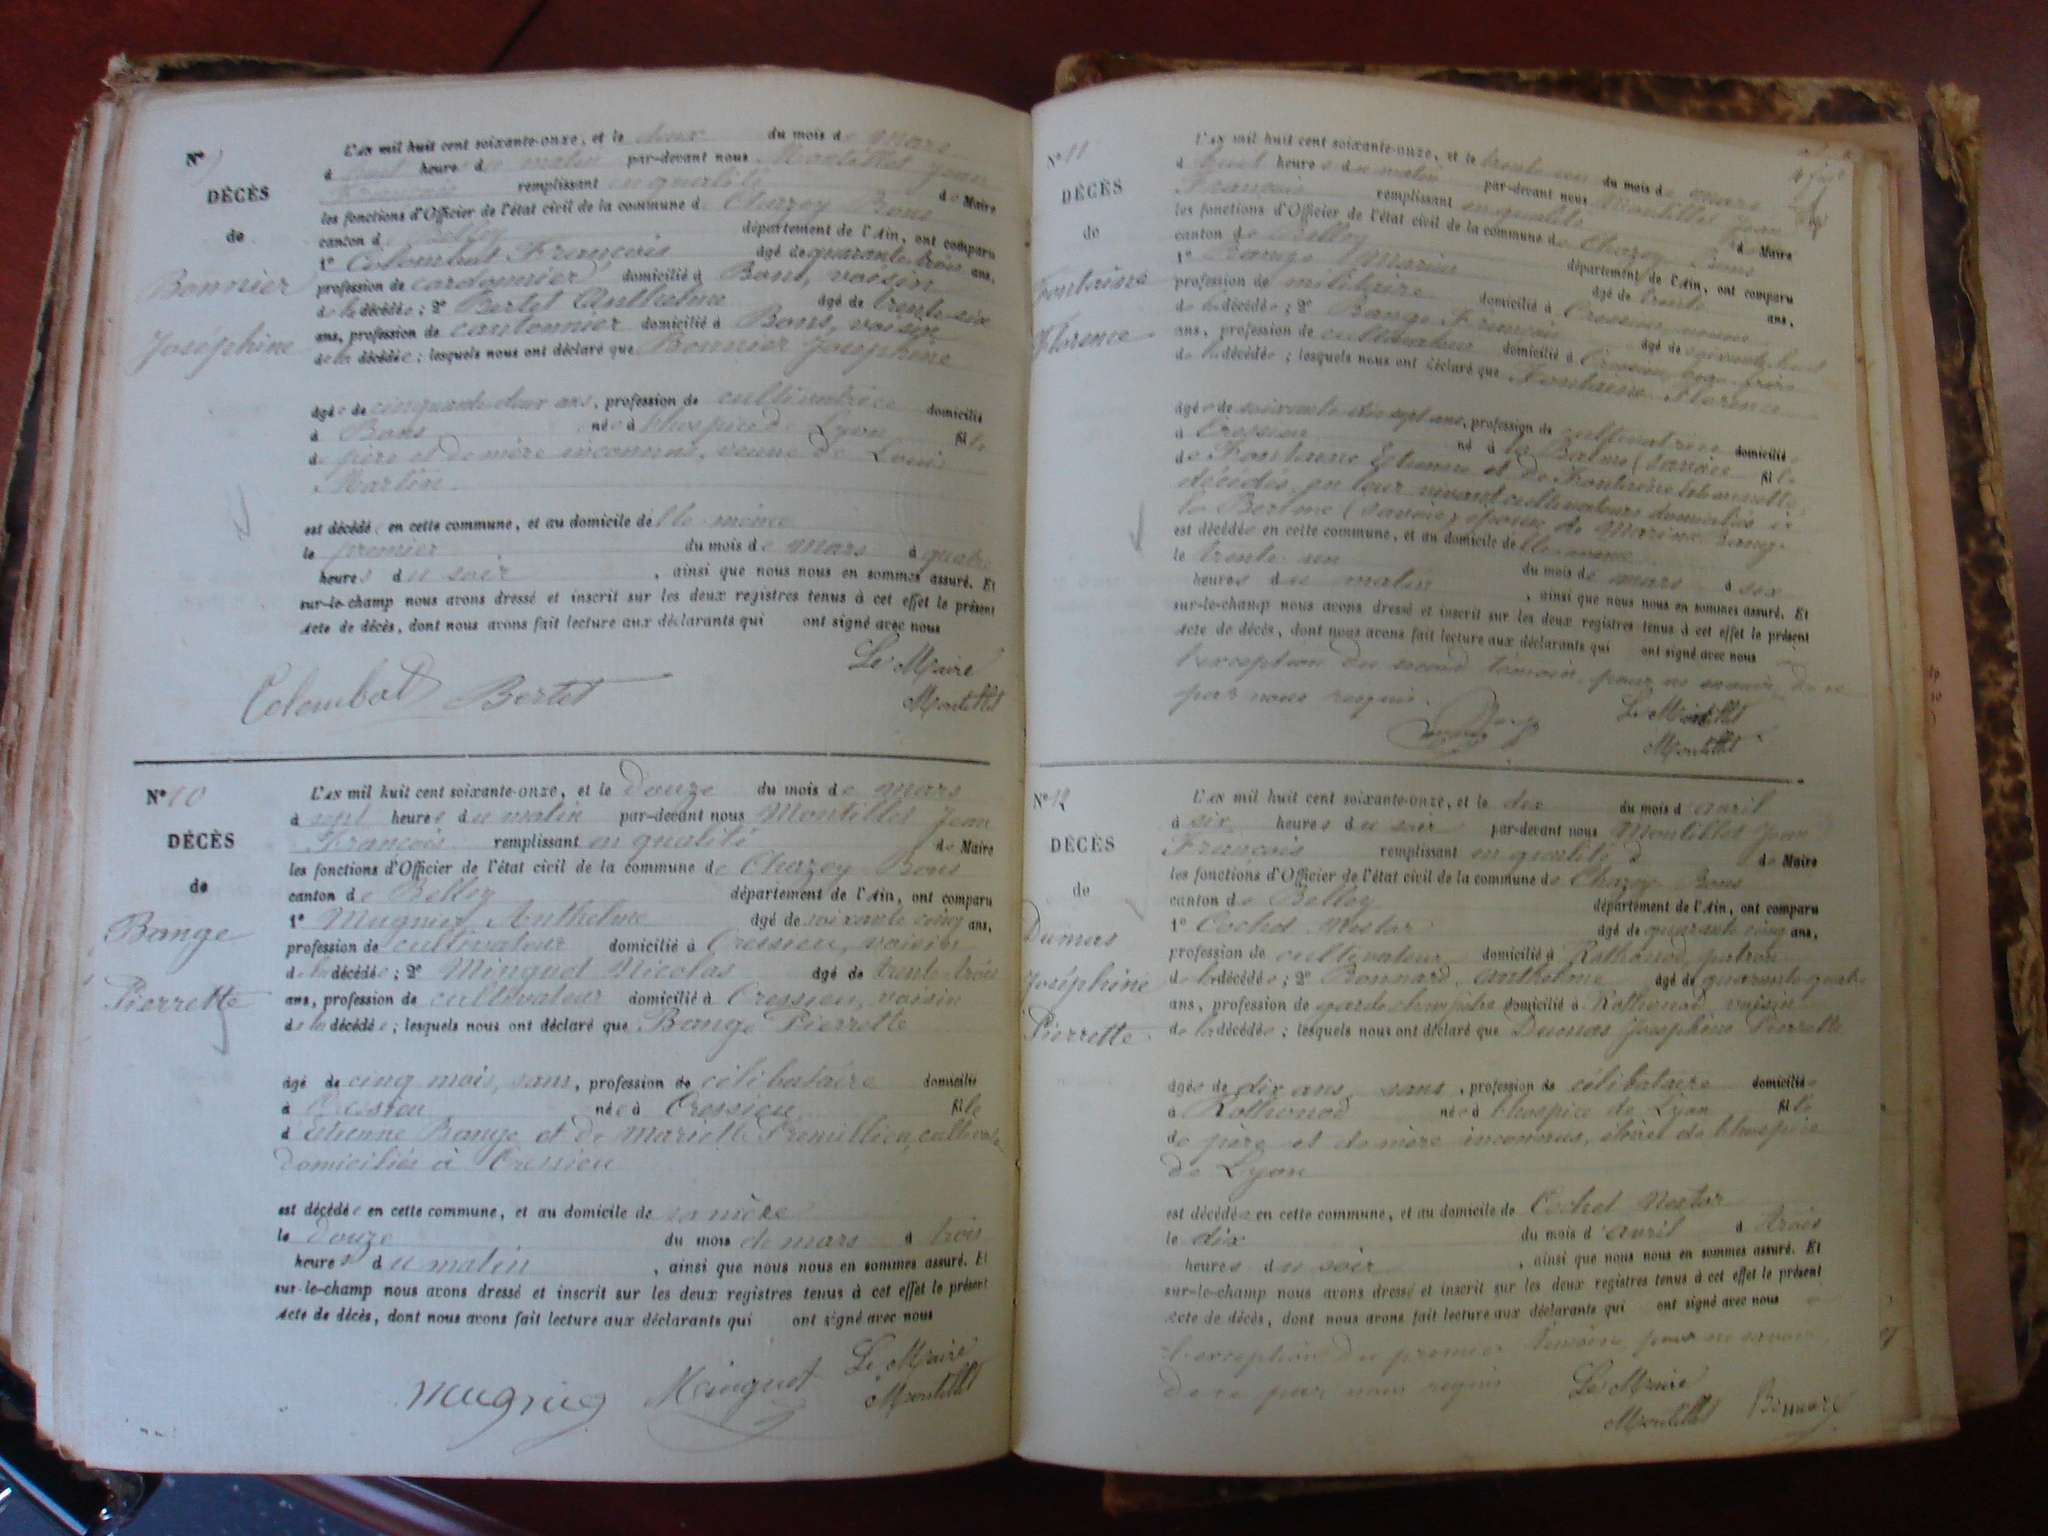 N° 9
DÉCÈS
de
Bonnier
Joséphine
L'AN mil huit cent soixante-onze, et le deux du mois de mars
à huit heures du matin par-devant nous Montillet Jean
François remplissant en qualité de Maire
les fonctions d'Officier de l'état civil de la commune de Chazey Bons
canton de Belley département de l'Ain, ont comparu
1° Colombat François âgé de quarante trois ans,
profession de domicilié à Bons, voisin
de la décédée; 2° Bertet Anthelme âgé de trente six
ans, profession de cantonnier domicilié à Bons, voisin
de la décédée; lesquels nous ont déclaré que Bonnier Joséphine
âgée de cinquante deux ans, profession de cultivatrice domicilié
à Bons née à l'hospice de Lyon fille
de père et de mère inconnus, veuve de Louis
Martin
est décédée en cette commune, et au domicile d'elle même
le premier du mois de mars à quatre
heures du soir, ainsi que nous nous en sommes assuré. Et
sur-le-champ nous avons dressé et inscrit sur les deux registres tenus à cet effet le présent
acte de décès, dont nous avons fait lecture aux déclarants qui ont signé avec nous
Le Maire
Colombat Bertet Montillet
N° 10
DÉCÈS
de
Bange
Pierrette
L'AN mil huit cent soixante-onze, et le douze du mois de mars
à sept heures du matin par-devant nous Montillet Jean
François remplissant en qualité de Maire
les fonctions d'Officier de l'état civil de la commune de Chazey Bons
canton de Belley département de l'Ain, ont comparu
1° Mugnier Anthelme âgé de soixante cinq ans,
profession de cultivateur domicilié à Cressieu, voisin
de la décédée; 2° Minguet Nicolas âgé de trente trois
ans, profession de cultivateur domicilié à Cressieu, voisin
de la décédée; lesquels nous ont déclaré que Bange Pierrette
âgé de cinq mois, sans, profession de célibataire domicilié
à Cressieu née à Cressieu fille
d'Etienne Bange et de Mariette
domiciliés à Cressieu
est décédée en cette commune, et au domicile de sa mère
le douze du mois de mars à trois
heures du matin, ainsi que nous nous en sommes assuré. Et
sur-le-champ nous avons dressé et inscrit sur les deux registres tenus à cet effet le présent
acte de décès, dont nous avons fait lecture aux déclarants qui ont signé avec nous
Le Maire
Mugnier Minguet Montillet
N° 11
DÉCÈS
de
Fontaine
Florence
L'AN mil huit cent soixante-onze, et le trente un du mois de mars
à huit heures du matin par-devant nous Montillet Jean
François remplissant en qualité de Maire
les fonctions d'Officier de l'état civil de la commune de Chazey Bons
canton de Belley département de l'Ain, ont comparu
1° Bange Marius âgé de trente ans,
profession de militaire domicilié à Cressieu,
de la décédée; 2° Bange François âgé de soixante huit
ans, profession de cultivateur domicilié à Cressieu, beau frère
de la décédée; lesquels nous ont déclaré que Fontaine Florence
âgée de soixante dix sept ans, profession de cultivatrice domicilié
à Cressieu né à la Balme (Savoie fille
de Fontaine Etienne et de Fontaine
décédés, en leur vivant cultivateurs domiciliés à
la Balme (Savoie) épouse de Bange
est décédée en cette commune, et au domicile d'elle même
le trente un du mois de mars à six
heures du matin, ainsi que nous nous en sommes assuré. Et
sur-le-champ nous avons dressé et inscrit sur les deux registres tenus à cet effet le présent
acte de décès, dont nous avons fait lecture aux déclarants qui ont signé avec nous
l'exception du second témoin, pour ne savoir de ce
par nous requis.
Le Maire
Montillet
N° 12
DÉCÈS
de
Dumas
Joséphine
Pierrette
L'AN mil huit cent soixante-onze, et le dix du mois d'avril
à six heures du soir par-devant nous Montillet Jean
François remplissant en qualité d de Maire
les fonctions d'Officier de l'état civil de la commune de Chazey Bons
canton de Belley département de l'Ain, ont comparu
1° Cochet Nestor âgé de quarante cinq ans,
profession de cultivateur domicilié à Rothonod, patron
de la décédée; 2° Bonnard Anthelme âgé de quarante quatre
ans, profession de garde champêtre domicilié à Rothonod, voisin
de la décédée; lesquels nous ont déclaré que Dumas Joséphine Pierrette
âgée de dix ans, sans, profession de célibataire domiciliée
à Rothonod née à l'hospice de Lyon fille
de père et de mère inconnus, élève de l'hospice
de Lyon
est décédée en cette commune, et au domicile de Cochet Nestor
le dix du mois d'avril à trois
heures du soir, ainsi que nous nous en sommes assuré. Et
sur-le-champ nous avons dressé et inscrit sur les deux registres tenus à cet effet le présent
acte de décès, dont nous avons fait lecture aux déclarants qui ont signé avec nous
l'exception du premier témoin pour ne savoir,
de ce par nous requis
Le Maire
Montillet Bonnard